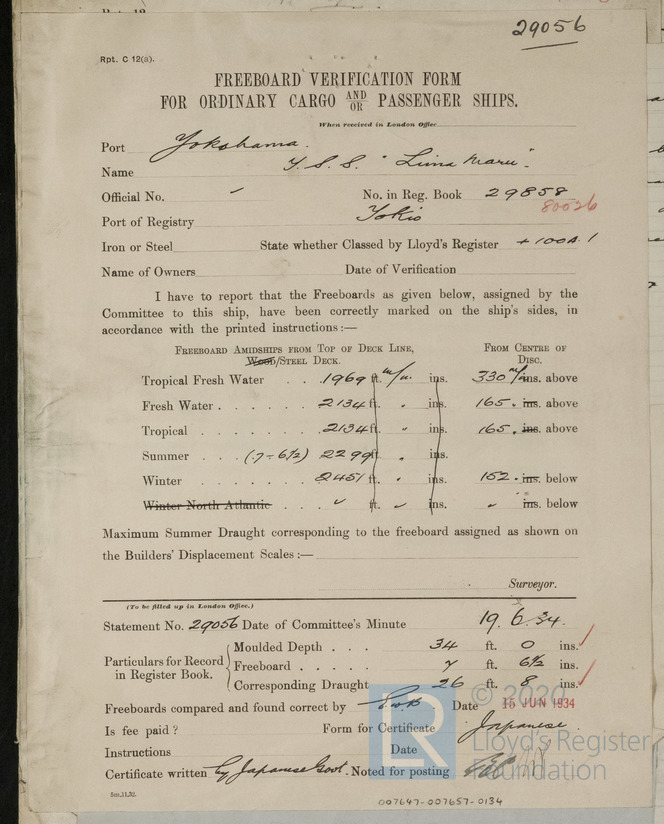 29056
Rpt. C 12(a).
FREEBOARD VERIFICATION FORM
FOR ORDINARY CARGO AND/OR PASSENGER SHIPS.
When received in London Office
Port Yokohama.
Name T.S.S. "Lima Maru".
Official No. – No. in Reg. Book 29858
80026
Port of Registry Tokio
Iron or Steel State whether Classed by Lloyd's Register +100A.1
Name of Owners Date of Verification
I have to report that the Freeboards as given below, assigned by the
Committee to this ship, have been correctly marked on the ship's sides, in
accordance with the printed instructions:—
FREEBOARD AMIDSHIPS FROM TOP OF DECK LINE, FROM CENTRE OF
WOOD/STEEL DECK. DISC.
Tropical Fresh Water . . 1969 ft. m/m. ins. 330 m/m ins. above
Fresh Water . . . . . 2134 ft. " ins. 165 " ins. above
Tropical . . . . . . 2134 ft. " ins. 165 " ins. above
Summer . . . (7-6½) 2299 ft. " ins.
Winter . . . . . . 2451 ft. " ins. 152 " ins. below
Winter North Atlantic . . . ft. ins. ins. below
Maximum Summer Draught corresponding to the freeboard assigned as shown on
the Builders' Displacement Scales:—
Surveyor.
(To be filled up in London Office.)
Statement No. 29056 Date of Committee's Minute 19.6.34.
Particulars for Record in Register Book.
Moulded Depth . . . 34 ft. 0 ins.
Freeboard . . . . . 7 ft. 6½ ins.
Corresponding Draught 26 ft. 8 ins.
Freeboards compared and found correct by Date 15 JUN 1934
Is fee paid? Form for Certificate Japanese
Instructions Date
Certificate written by Japanese Govt. Noted for posting
5m,11,32.
007647-007657-0134
© 2020
LR
Lloyd's Register
Foundation